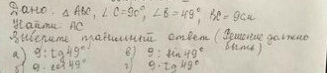 Дано: △ABC, ∠C=90°, ∠B=49°, BC=9см
Найти: AC
Выберите правильный ответ (Решение должно быть)
а) 9:tg49° в) 9:sin49°
б) 9·cos49° г) 9·tg49°